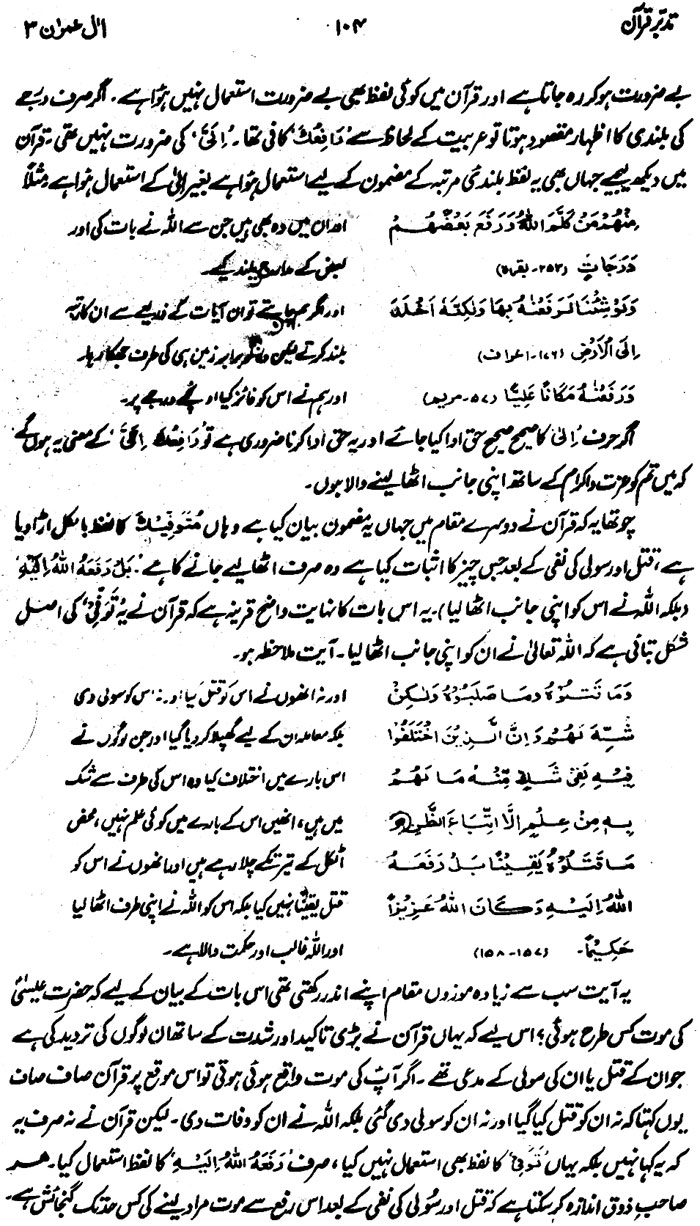 تدبّرِ قرآن ۱۰۴ اٰل عمران ۳
بے ضرورت ہو کر رہ جاتا ہے اور قرآن میں کوئی لفظ بھی بے ضرورت استعمال نہیں ہوا ہے۔ اگر صرف درجے
کی بلندی کا اظہار مقصود ہوتا تو عربیت کے لحاظ سے ’رَافِعُكَ‘ کافی تھا۔ ’اِلَیَّ‘ کی ضرورت نہیں تھی۔ قرآن
میں دیکھ لیجیے جہاں بھی یہ لفظ بلندیٔ مرتبہ کے مضمون کے لیے استعمال ہوا ہے بغیر اِلیٰ کے استعمال ہوا ہے مثلاً
مِنْهُمْ مَنْ كَلَّمَ اللهُ وَرَفَعَ بَعْضَهُمْ اور ان میں وہ بھی ہیں جن سے اللہ نے بات کی اور
دَرَجَاتٍ (۲۵۳- بقرہ) بعض کے مدارج بلند کیے۔
وَلَوْ شِئْنَا لَرَفَعْنٰهُ بِهَا وَلٰكِنَّهٗ اَخْلَدَ اور اگر ہم چاہتے تو ان آیات کے ذریعے سے ان کا رتبہ
اِلَى الْاَرْضِ (۱۷۶-اعراف) بلند کرتے لیکن وہ تو برابر زمین ہی کی طرف جھکا رہا۔
وَرَفَعْنٰهُ مَكَانًا عَلِيًّا (۵۷-مریم) اور ہم نے اس کو فائز کیا اونچے درجے پر۔
اگر حرف ’اِلیٰ‘ کا صحیح صحیح حق ادا کیا جائے اور یہ حق ادا کرنا ضروری ہے تو ’رَافِعُكَ اِلَیَّ‘ کے معنی یہ ہوں گے
کہ میں تم کو عزت و اکرام کے ساتھ اپنی جانب اٹھا لینے والا ہوں۔
چوتھا یہ کہ قرآن نے دوسرے مقام میں جہاں یہ مضمون بیان کیا ہے وہاں مُتَوَفِّيْكَ کا لفظ بالکل اڑا دیا
ہے، قتل اور سولی کی نفی کے بعد جس چیز کا اثبات کیا ہے وہ صرف اٹھا لیے جانے کا ہے ’بَلْ رَفَعَهُ اللهُ اِلَيْهِ‘
(بلکہ اللہ نے اس کو اپنی جانب اٹھا لیا) یہ اس بات کا نہایت واضح قرینہ ہے کہ قرآن نے یہ ’تَوَفِّیْ‘ کی اصل
شکل بتائی ہے کہ اللہ تعالیٰ نے ان کو اپنی جانب اٹھا لیا۔ آیت ملاحظہ ہو۔
وَمَا قَتَلُوْهُ وَمَا صَلَبُوْهُ وَلٰكِنْ اور نہ انھوں نے اس کو قتل کیا اور نہ اس کو سولی دی
شُبِّهَ لَهُمْ وَاِنَّ الَّذِيْنَ اخْتَلَفُوْا بلکہ معاملہ ان کے لیے گھپلا کر دیا گیا اور جن لوگوں نے
فِيْهِ لَفِيْ شَكٍّ مِّنْهُ مَا لَهُمْ اس بارے میں اختلاف کیا وہ اس کی طرف سے شک
بِهٖ مِنْ عِلْمٍ اِلَّا اتِّبَاعَ الظَّنِّ میں ہیں، انھیں اس کے بارے میں کوئی علم نہیں، محض
مَا قَتَلُوْهُ يَقِيْنًا بَلْ رَفَعَهُ اٹکل کے تیر تکے چلا رہے ہیں اور انھوں نے اس کو
اللهُ اِلَيْهِ وَكَانَ اللهُ عَزِيْزًا قتل یقیناً نہیں کیا بلکہ اس کو اللہ نے اپنی طرف اٹھا لیا
حَكِيْمًا۔ (۱۵۷-۱۵۸) اور اللہ غالب اور حکمت والا ہے۔
یہ آیت سب سے زیادہ موزوں مقام اپنے اندر رکھتی تھی اس بات کے بیان کے لیے کہ حضرت عیسیٰؑ
کی موت کس طرح ہوئی؟ اس لیے کہ یہاں قرآن نے بڑی تاکید اور شدت کے ساتھ ان لوگوں کی تردید کی ہے
جو ان کے قتل یا ان کی سولی کے مدعی تھے۔ اگر آپؑ کی موت واقع ہوئی ہوتی تو اس موقع پر قرآن صاف صاف
یوں کہتا کہ نہ ان کو قتل کیا گیا اور نہ ان کو سولی دی گئی بلکہ اللہ نے ان کو وفات دی۔ لیکن قرآن نے نہ صرف یہ
کہ یہ کہا نہیں بلکہ یہاں ’تَوَفِّیْ‘ کا لفظ بھی استعمال نہیں کیا، صرف ’رَفَعَهُ اللهُ اِلَيْهِ‘ کا لفظ استعمال کیا۔ ہر
صاحبِ ذوق اندازہ کر سکتا ہے کہ قتل اور سُولی کی نفی کے بعد اس رفع سے موت مراد لینے کی کس حد تک گنجائش ہے۔